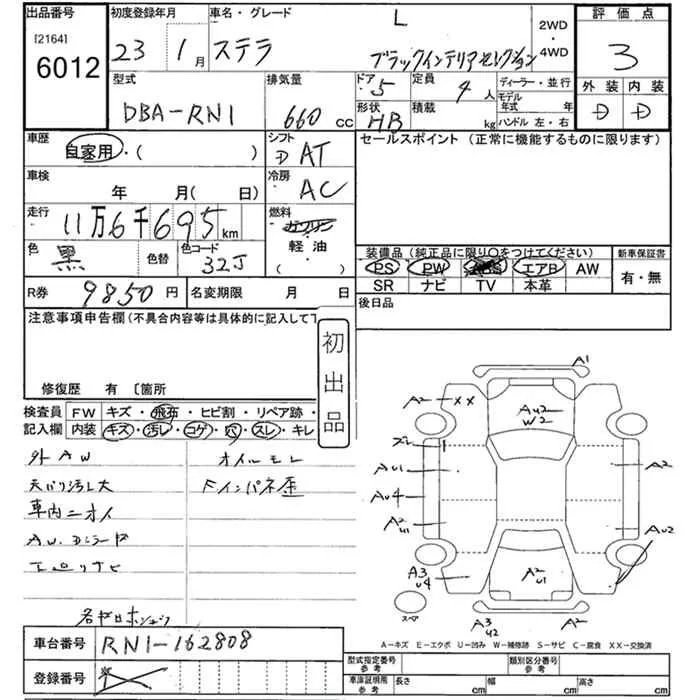 出品番号
[2164]
6012
初度登録年月
23 1月
車名・グレード
L
ステラ
ブラックインテリアセレクション
2WD
・
4WD
評価点
3
外装 内装
D D
型式
DBA-RN1
排気量
660 cc
ドア
5
形状
HB
定員
4人
積載
kg
ディーラー・並行
モデル年式 年
ハンドル 左・右
車歴
自家用・( )
シフト
D AT
車検
年 月( 日)
冷房
AC
走行
11万6千695km
燃料
ガソリン
軽油
( )
色
黒
色替
色コード
32J
R券 9850円
名変期限 月 日
セールスポイント (正常に機能するものに限ります)
装備品(純正品に限り○をつけてください)
PS PW ABS エアB AW
SR ナビ TV 本革
新車保証書
有・無
後日品
注意事項申告欄(不具合内容等は具体的に記入して下
修復歴 有 〔箇所
初出品
検査員 FW キズ・飛石・ヒビ割・リペア跡・
記入欄 内装 キズ・汚レ・コゲ・穴・スレ・キレ
外AW
オイルモレ
天バリ汚レ大
Fインパネ歪
車内ニオイ
車台番号 RN1-162808
登録番号
A1
A2 XX
AU2
W2
ズレ
AU1
AU4
A2
U1
A2
AU2
A3
U4
A2
U1
スペア
A3
U2
A2
A-キズ E-エクボ U-凹み W-補修跡 S-サビ C-腐食 XX-交換済
型式指定番号
参考
類別区分番号
参考
車庫証明用
参考
長さ cm
幅 cm
高さ cm